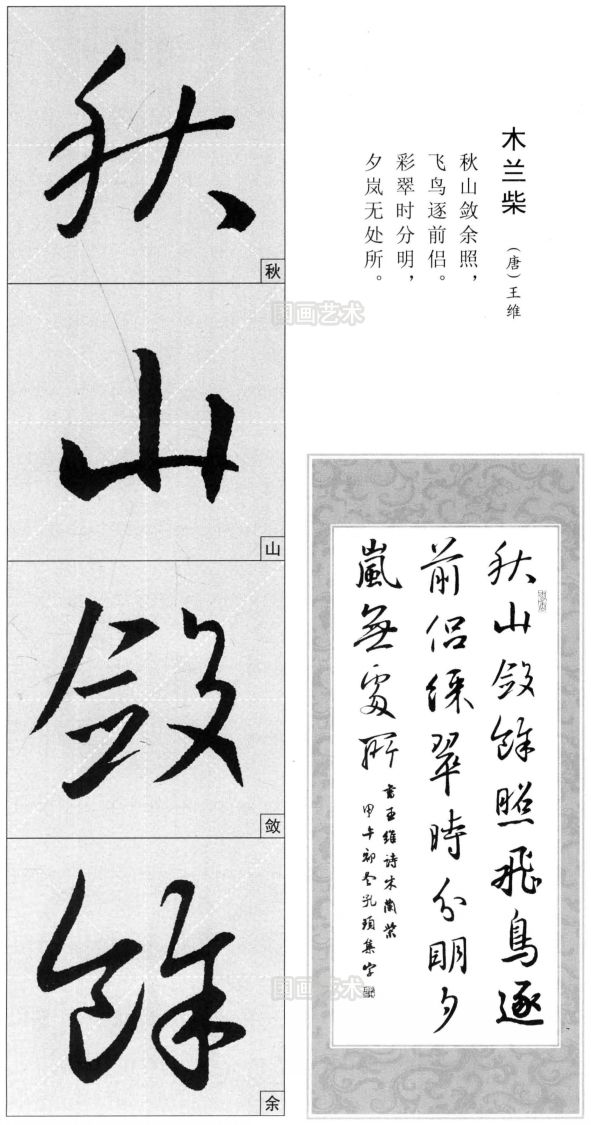 木兰柴
（唐）王维
秋山敛余照，
飞鸟逐前侣。
彩翠时分明，
夕岚无处所。
秋
秋
山
山
敛
敛
餘
余
秋山斂餘照飛鳥逐
前侣綵翠時分明夕
嵐無處所
書王維詩木蘭柴
甲午初冬孔頊集字
国画艺术
国画艺术